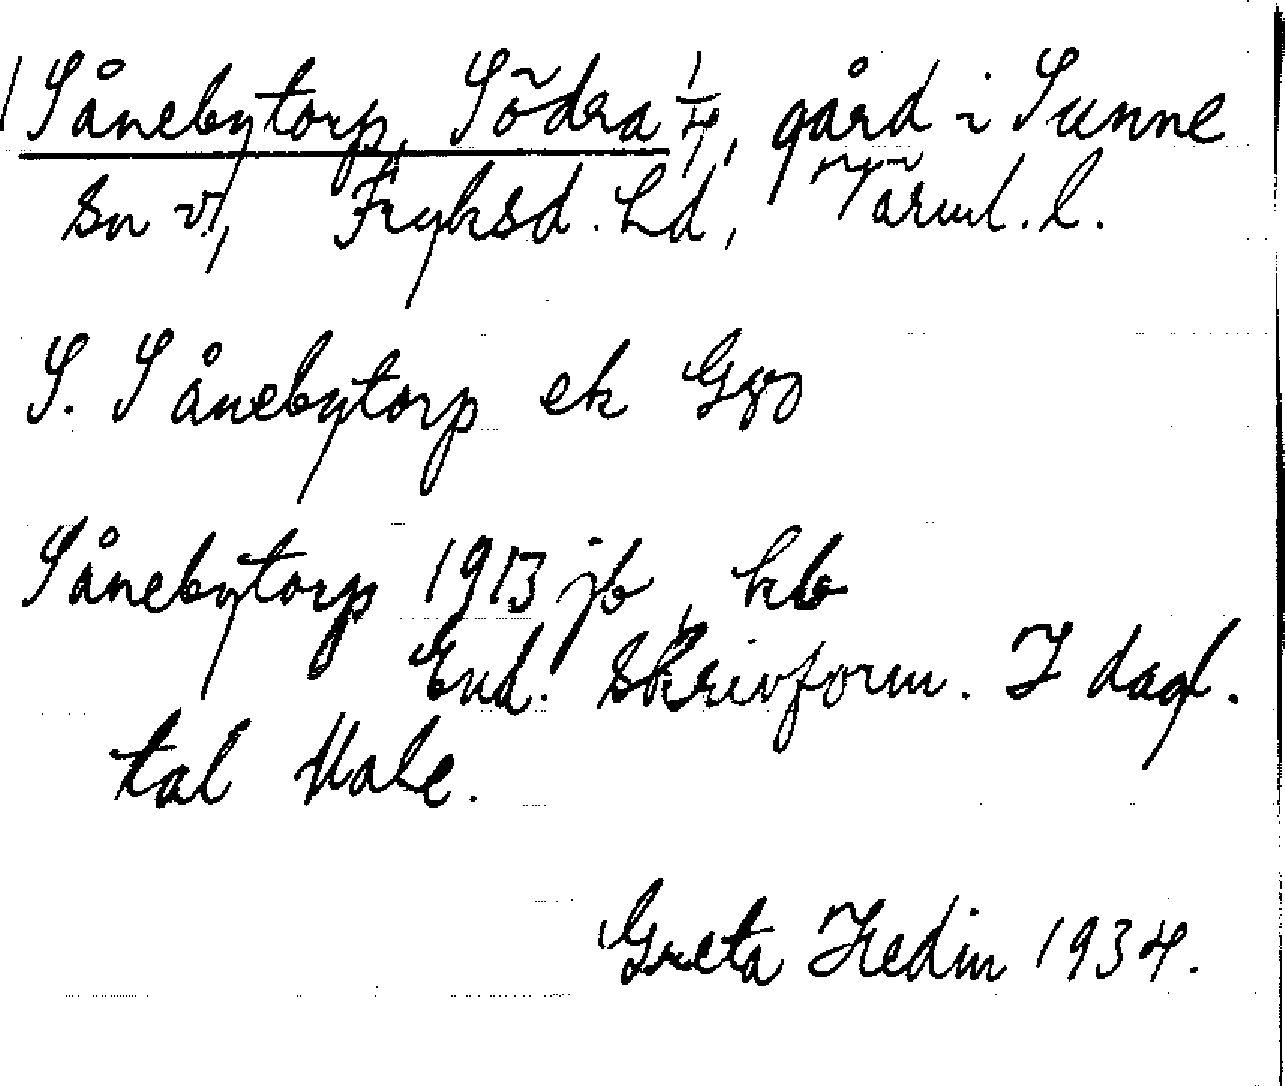 Sånebytorp, Södra 1/4, gård i Sunne
sn v, Fryksd. hd, Värml. l.
S. Sånebytorp ek G80
Sånebytorp 1913 jb, kb
End. skrivform. I dagl.
tal Hole.
Greta Hedin 1934.